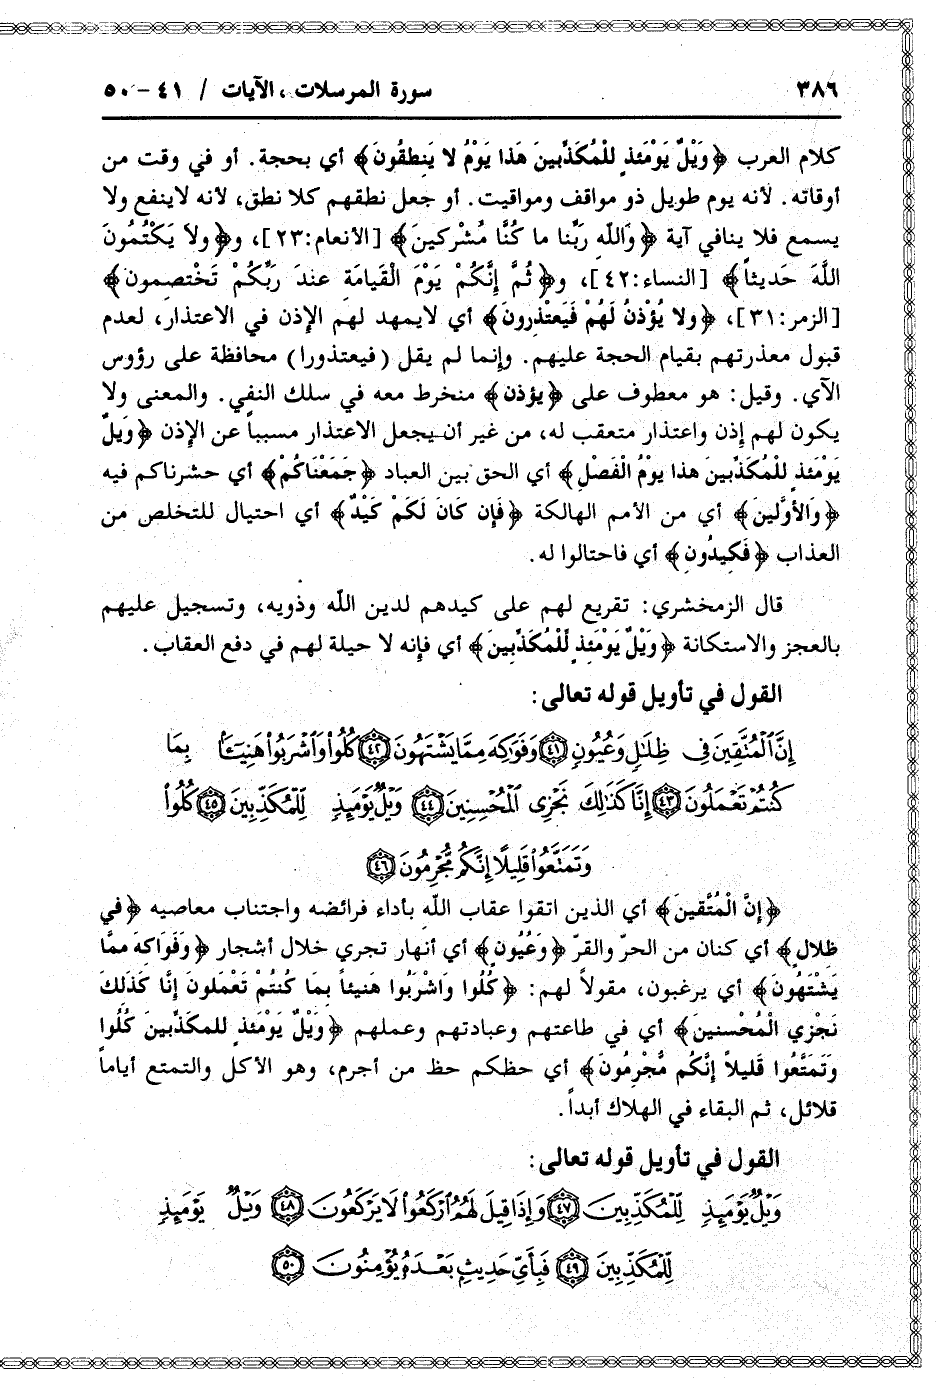 ٣٨٦ سورة المرسلات ، الآيات / ٤١ – ٥٠
كلام العرب ﴿وَيْلٌ يَوْمَئذٍ للْمُكَذِّبينَ هَذا يَوْمُ لا يَنطقُونَ﴾ أي بحجة. أو في وقت من
أوقاته. لأنه يوم طويل ذو مواقف ومواقيت. أو جعل نطقهم كلا نطق، لأنه لاينفع ولا
يسمع فلا ينافي آية ﴿وَاللَّهِ رَبِّنا ما كُنَّا مُشْركينَ﴾ [الأنعام:٢٣]، و﴿ولا يَكْتُمُونَ
اللَّهَ حَديثاً﴾ [النساء:٤٢]، و﴿ثُمَّ إنَّكُمْ يَوْمَ الْقيَامَةِ عندَ رَبِّكُمْ تَخْتصمون﴾
[الزمر:٣١]، ﴿ولا يُؤْذنُ لَهُمْ فَيَعتْذرونَ﴾ أي لايمهد لهم الإذن في الاعتذار، لعدم
قبول معذرتهم بقيام الحجة عليهم. وإنما لم يقل (فيعتذورا) محافظة على رؤوس
الآي. وقيل: هو معطوف على ﴿يؤذن﴾ منخرط معه في سلك النفي. والمعنى ولا
يكون لهم إذن واعتذار متعقب له، من غير أن يجعل الاعتذار مسبباً عن الإذن ﴿وَيلٌ
يَوْمَئذٍ للْمُكَذِّبينَ هذا يوْمُ الْفَصْلِ﴾ أي الحق بين العباد ﴿جَمَعْنَاكُمْ﴾ أي حشرناكم فيه
﴿وَالأوَّلينَ﴾ أي من الأمم الهالكة ﴿فَإن كَانَ لَكمْ كَيْدٌ﴾ أي احتيال للتخلص من
العذاب ﴿فَكيدُونِ﴾ أي فاحتالوا له.
قال الزمخشري: تقريع لهم على كيدهم لدين اللّه وذويه، وتسجيل عليهم
بالعجز والاستكانة ﴿وَيْلٌ يَوْمَئذٍ لِّلْمُكَذِّبينَ﴾ أي فإنه لا حيلة لهم في دفع العقاب.
القول في تأويل قوله تعالى:
إِنَّ ٱلْمُتَّقِينَ فِى ظِلَٰلٍ وَعُيُونٍ ﴿٤١﴾ وَفَوَٰكِهَ مِمَّا يَشْتَهُونَ ﴿٤٢﴾ كُلُوا۟ وَٱشْرَبُوا۟ هَنِيٓـًٔۢا بِمَا
كُنتُمْ تَعْمَلُونَ ﴿٤٣﴾ إِنَّا كَذَٰلِكَ نَجْزِى ٱلْمُحْسِنِينَ ﴿٤٤﴾ وَيْلٌ يَوْمَئِذٍ لِّلْمُكَذِّبِينَ ﴿٤٥﴾ كُلُوا۟
وَتَمَتَّعُوا۟ قَلِيلًا إِنَّكُم مُّجْرِمُونَ ﴿٤٦﴾
﴿إنَّ الْمُتَّقينَ﴾ أي الذين اتقوا عقاب اللّه بأداء فرائضه واجتناب معاصيه ﴿في
ظلالٍ﴾ أي كنان من الحرّ والقرّ ﴿وَعُيُونٍ﴾ أي أنهار تجري خلال أشجار ﴿وَفَوَاكهَ ممَّا
يَشْتَهُونَ﴾ أي يرغبون، مقولاً لهم: ﴿كُلُوا وَاشْرَبُوا هَنيئاً بمَا كُنتُمْ تَعْمَلونَ إنَّا كَذَلكَ
نَجْزي الْمُحْسنينَ﴾ أي في طاعتهم وعبادتهم وعملهم ﴿وَيْلٌ يَوْمَئذٍ للمكَذِّبينَ كُلُوا
وَتَمَتَّعُوا قَليلاً إنَّكُم مُّجْرمُونَ﴾ أي حظكم حظ من أجرم، وهو الأكل والتمتع أياماً
قلائل، ثم البقاء في الهلاك أبداً.
القول في تأويل قوله تعالى:
وَيْلٌ يَوْمَئِذٍ لِّلْمُكَذِّبِينَ ﴿٤٧﴾ وَإِذَا قِيلَ لَهُمُ ٱرْكَعُوا۟ لَا يَرْكَعُونَ ﴿٤٨﴾ وَيْلٌ يَوْمَئِذٍ
لِّلْمُكَذِّبِينَ ﴿٤٩﴾ فَبِأَىِّ حَدِيثٍۭ بَعْدَهُۥ يُؤْمِنُونَ ﴿٥٠﴾